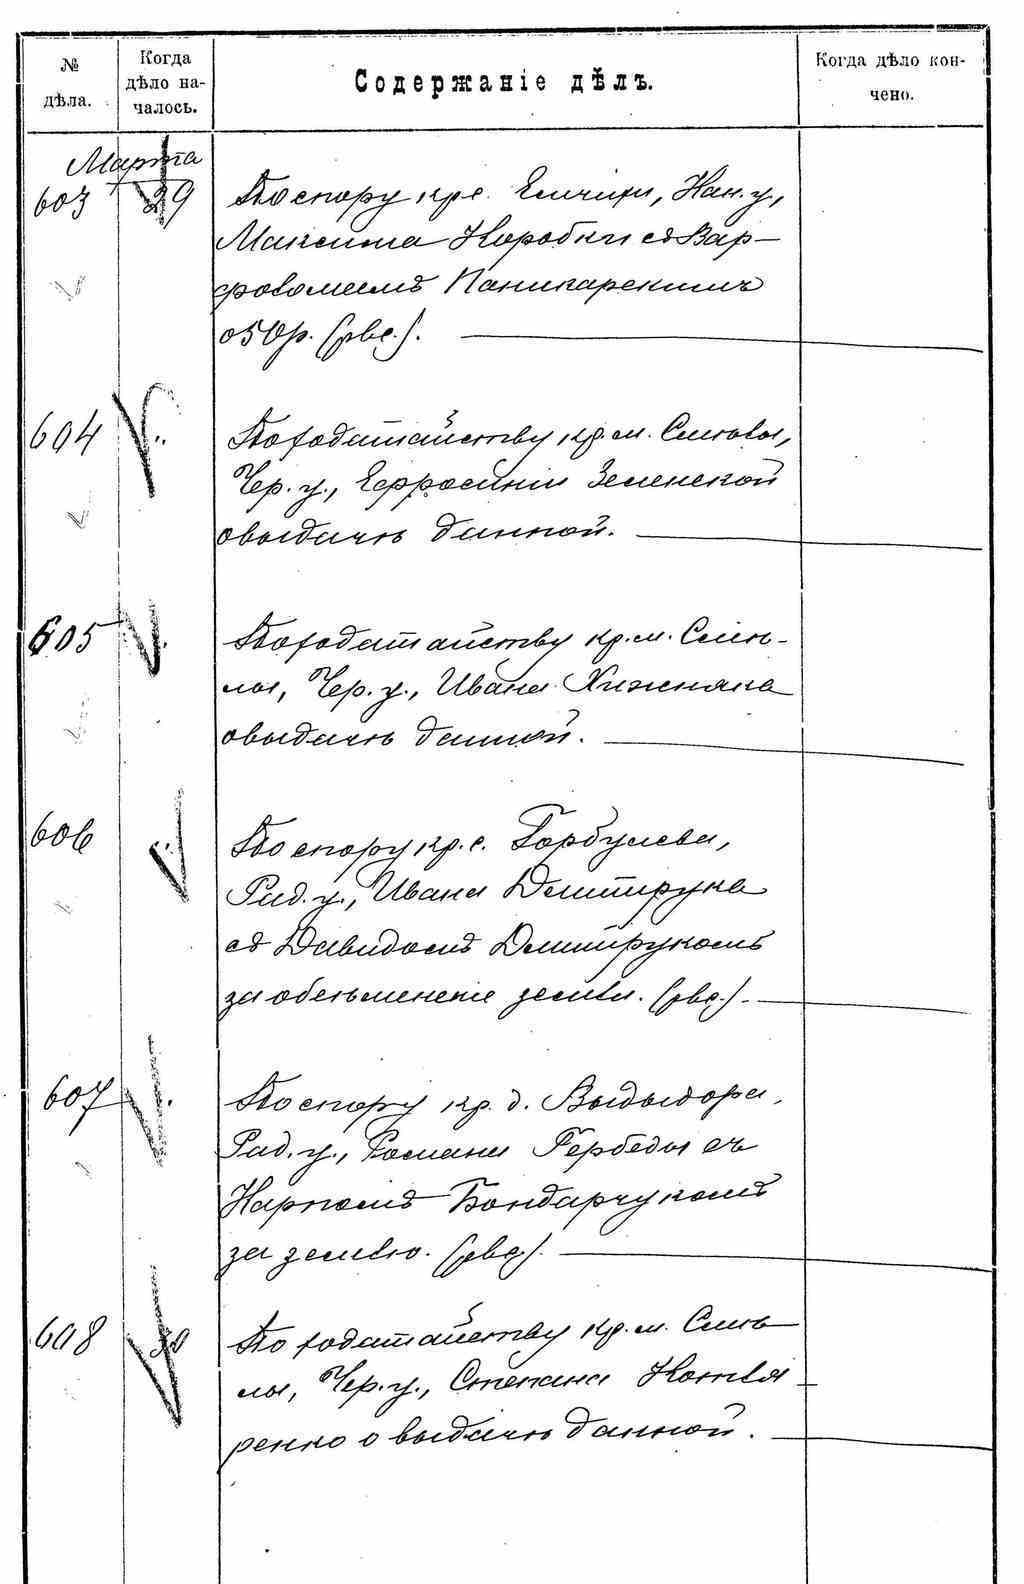 № дѣла.
Когда дѣло на-
чалось.
Содержаніе дѣлъ.
Когда дѣло кон-
чено.
Марта
603 29 По спору кр. с. Емчихи, Кан. у.,
Максима Коробки съ Вар-
фоломеемъ Паникарскимъ
о 50 р. (рвс.).
604 По ходатайству кр. м. Смѣлы,
Чер. у., Ефросиніи Зеленской
о выдачѣ данной.
605 По ходатайству кр. м. Смѣ-
лы, Чер. у., Ивана Хижняка
о выдачѣ данной.
606 По спору кр. с. Горбулева,
Рад. у., Ивана Дмитрука
съ Давидомъ Дмитрукомъ
за обезьмененіе земли. (рвс.).
607 По спору кр. д. Выдыбора,
Рад. у., Романа Гербеды съ
Карпомъ Бондарчукомъ
за землю. (рвс.).
608 30 По ходатайству кр. м. Смѣ-
лы, Чер. у., Степана Котля-
ренко о выдачѣ данной.